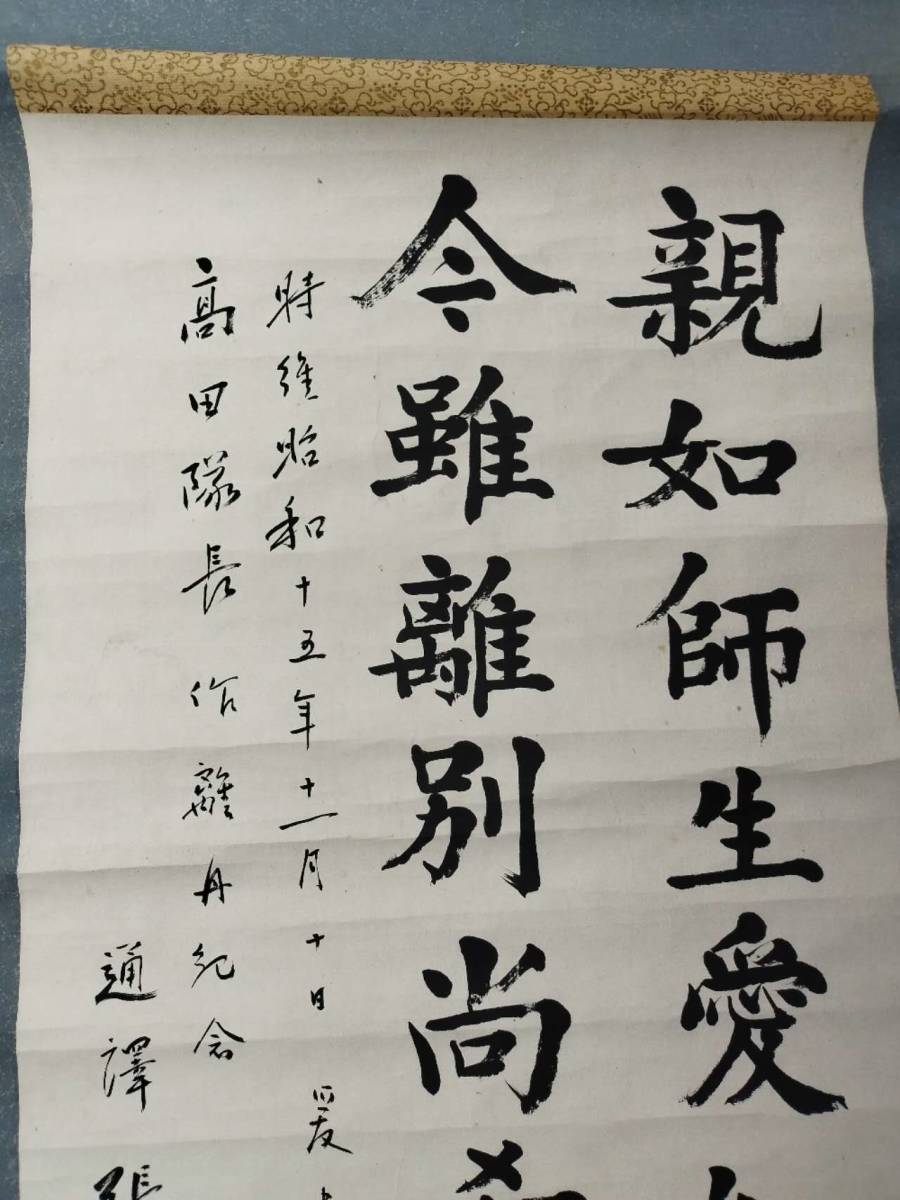 親如師生愛
今雖離別尚
時維昭和十五年十一月十日 爰
高田隊長作離丹紀念
通譯張